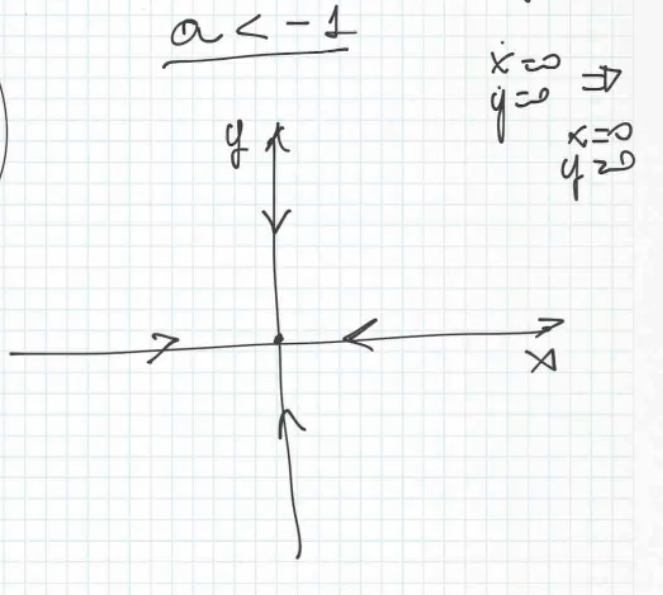 a < - 1
ẋ=0
ẏ=0 ⇒
x=0
y=0
y
x